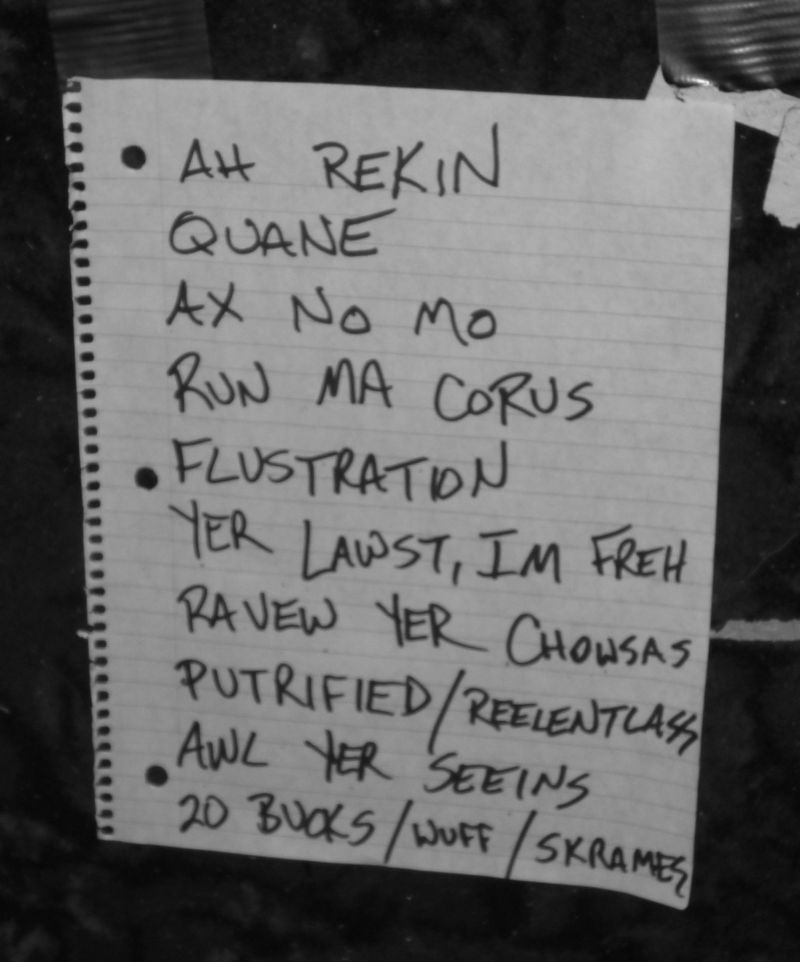 AH REKIN
QUANE
AX NO MO
RUN MA CORUS
FLUSTRATION
YER LAWST, IM FREH
RAVEW YER CHOWSAS
PUTRIFIED/REELENTLASS
AWL YER SEEINS
20 BUCKS/WUFF/SKRAMES